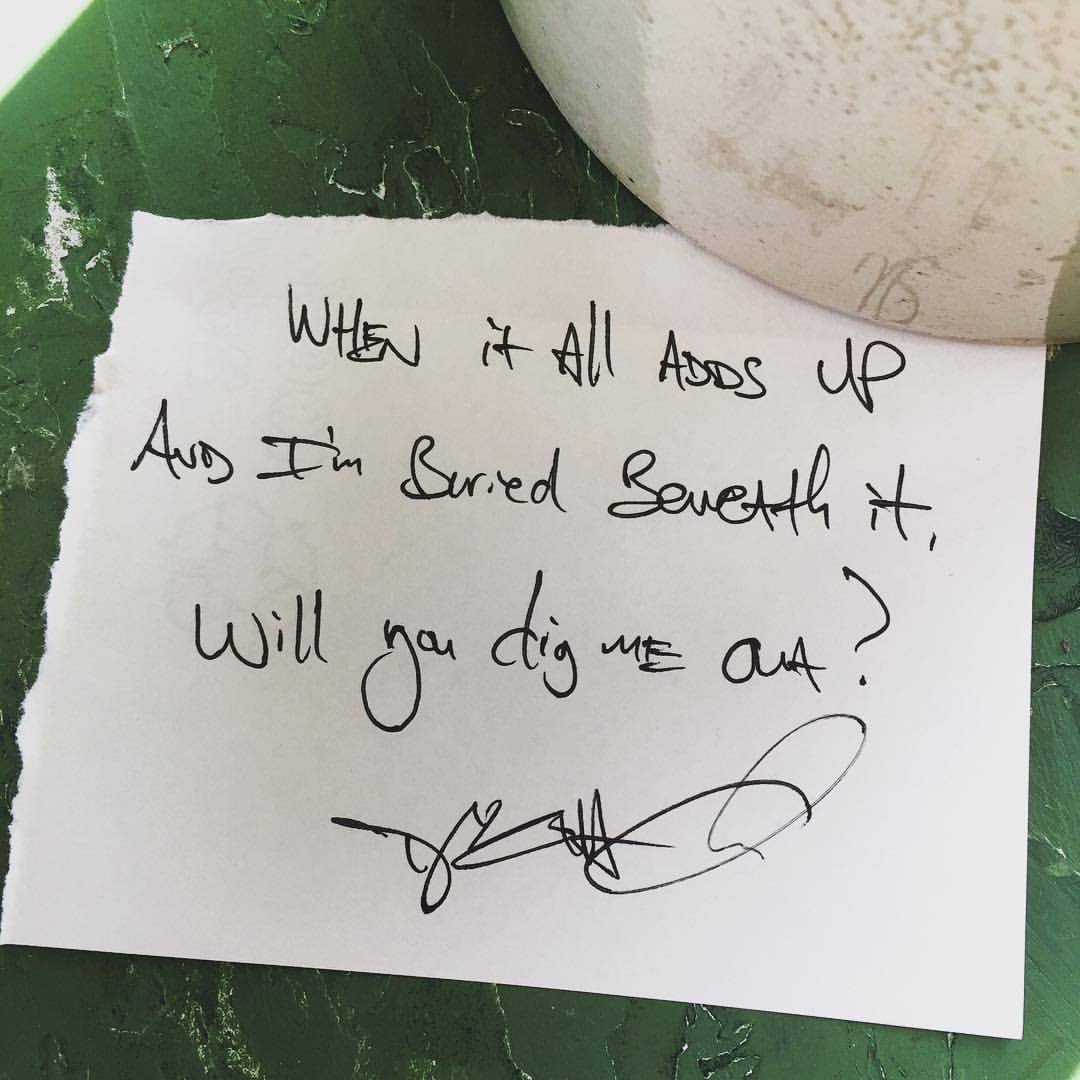 WHEN it All ADDS UP
AND I'm Buried BENEATH it,
Will you dig ME OUT?